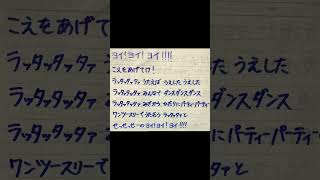 ヨイ!ヨイ!ヨイ!!!!
こえをあげてけ!
ラッタッタッタァ うたえば うえした うえした
ラッタッタッタァ みんなで ダンスダンス
ラッタッタッタァ みぎから ひだりにパーティーパーティー
ワンツースリーで うたおう ラッタッタァと
せっせっせーのヨイ!ヨイ!ヨイ!!!!